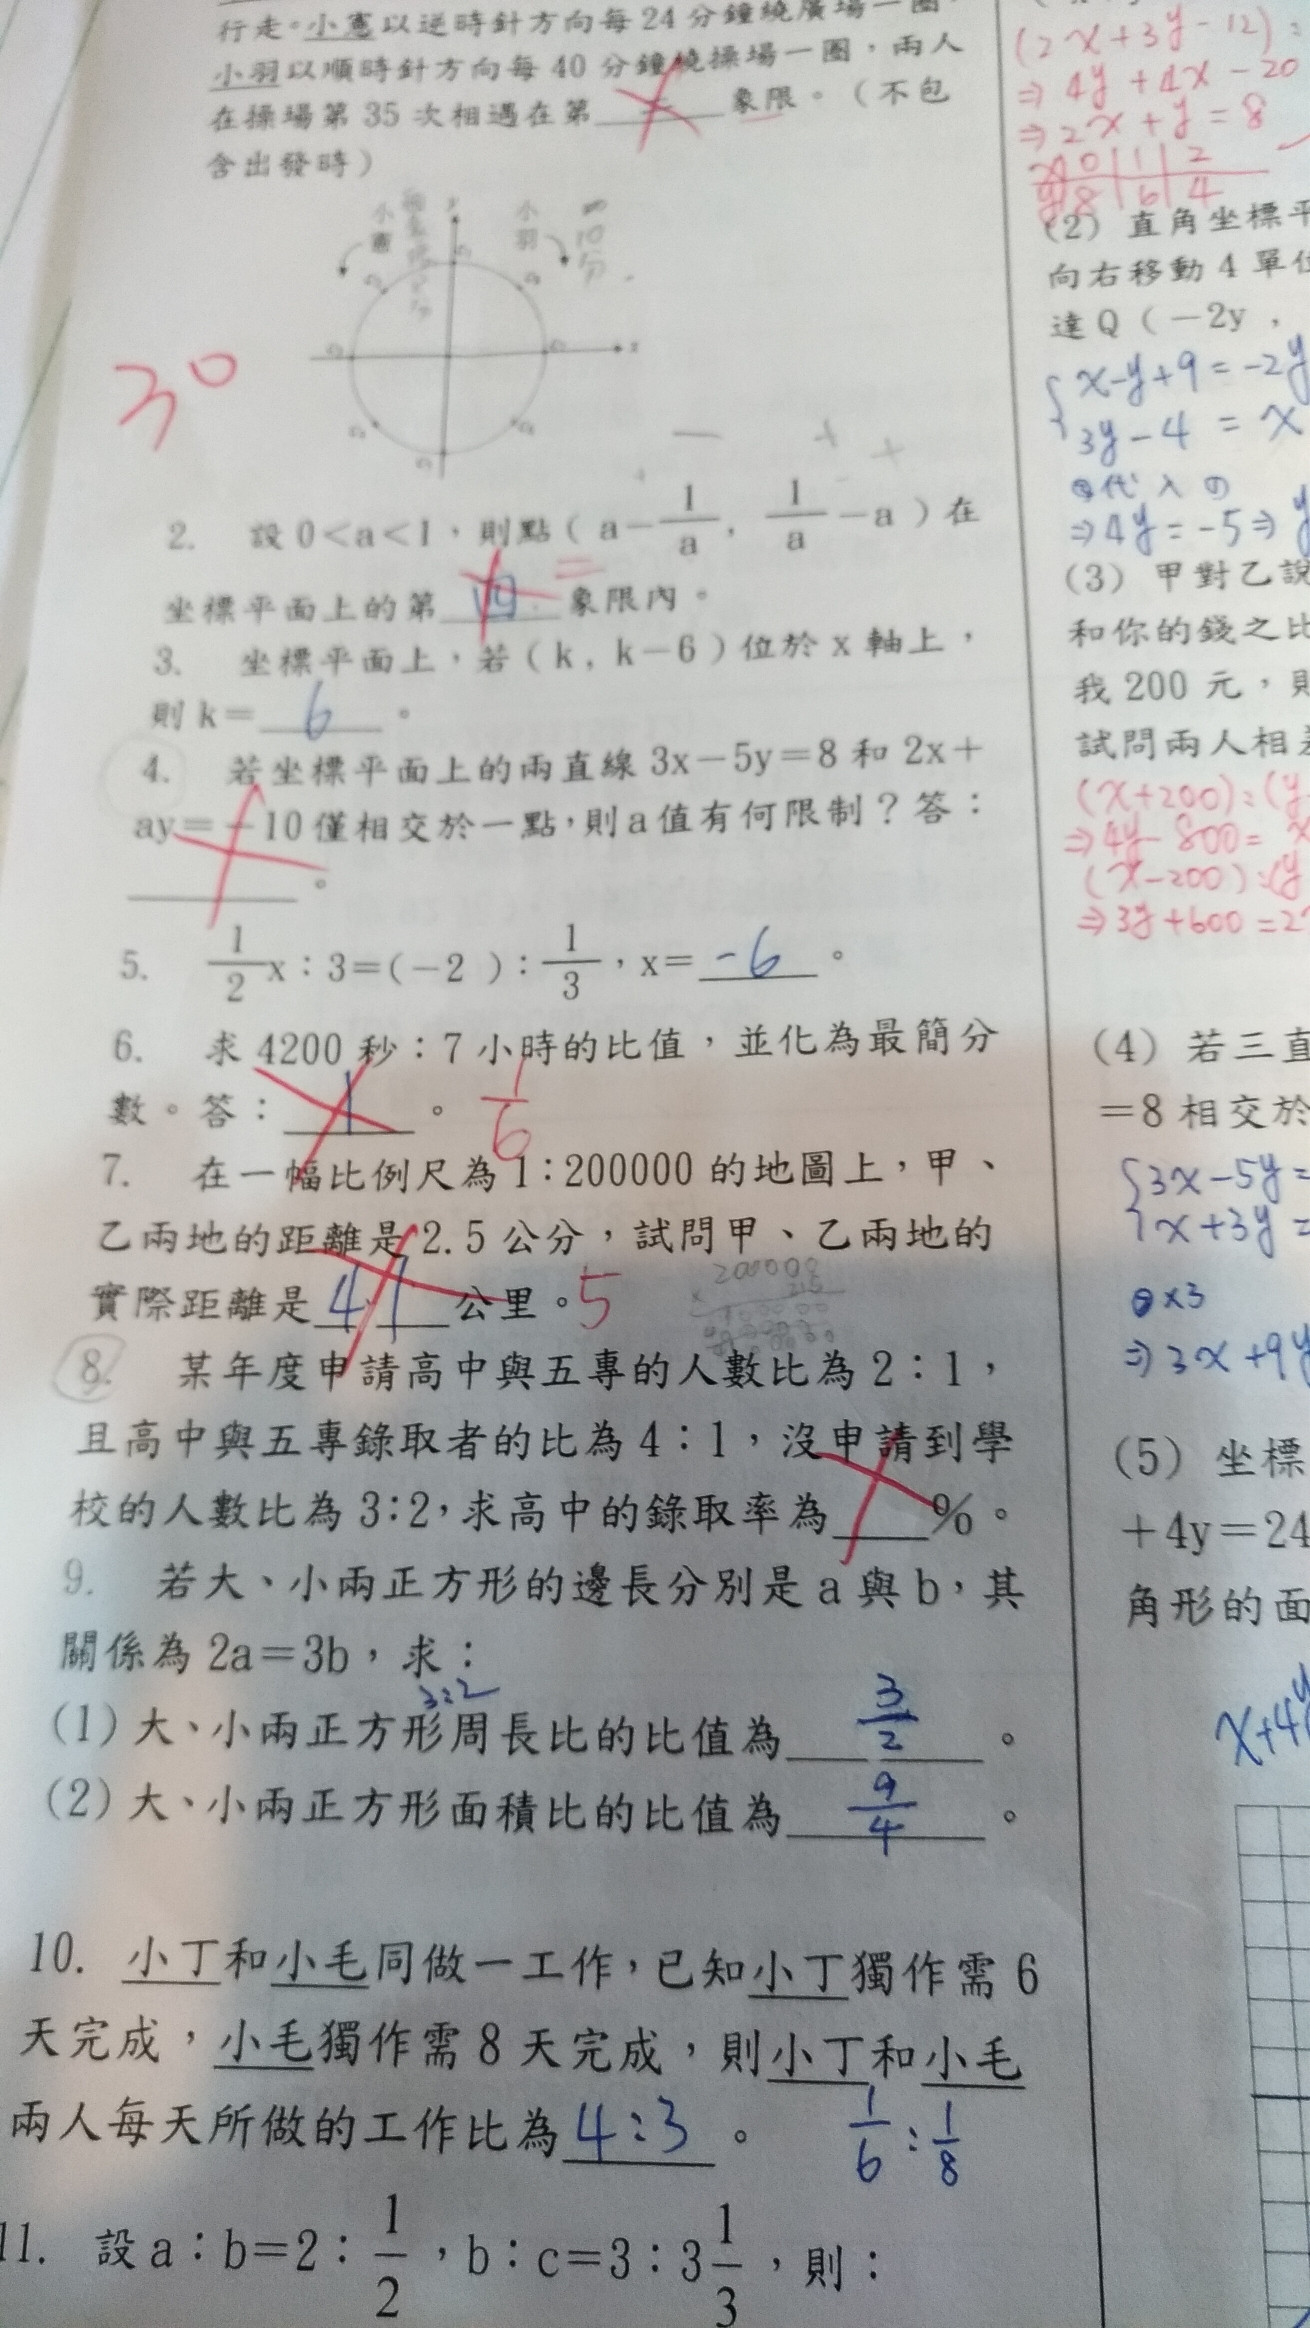 行走。小憲以逆時針方向每24分鐘繞廣場一圈，
小羽以順時針方向每40分鐘繞操場一圈，兩人
在操場第35次相遇在第____象限。（不包
含出發時）
小憲
小羽
10分
x
30
2. 設0<a<1，則點（a－1/a，1/a－a）在
坐標平面上的第 四 象限內。
二
3. 坐標平面上，若（k，k－6）位於x軸上，
則k＝ 6 。
4. 若坐標平面上的兩直線3x－5y＝8和2x＋
ay＝－10僅相交於一點，則a值有何限制？答：
____。
5. 1/2x：3＝(－2)：1/3，x＝ -6 。
6. 求4200秒：7小時的比值，並化為最簡分
數。答： 1 。 1/6
7. 在一幅比例尺為1：200000的地圖上，甲、
乙兩地的距離是2.5公分，試問甲、乙兩地的
實際距離是____公里。5
200000
8. 某年度申請高中與五專的人數比為2：1，
且高中與五專錄取者的比為4：1，沒申請到學
校的人數比為3：2，求高中的錄取率為____%。
9. 若大、小兩正方形的邊長分別是a與b，其
關係為2a＝3b，求：
3:2
(1)大、小兩正方形周長比的比值為 3/2 。
(2)大、小兩正方形面積比的比值為 9/4 。
10. 小丁和小毛同做一工作，已知小丁獨作需6
天完成，小毛獨作需8天完成，則小丁和小毛
兩人每天所做的工作比為 4:3 。 1/6:1/8
11. 設a：b＝2：1/2，b：c＝3：3 1/3，則：
(2x+3y-12):
⇒4y+4x-20
⇒2x+y=8
x 0 1 2
y 8 6 4
(2) 直角坐標平
向右移動4單位
達Q（－2y，
x-y+9=-2y
3y-4=x
②代入①
⇒4y=-5⇒y
(3) 甲對乙說
和你的錢之比
我200元，則
試問兩人相差
(x+200):(y
⇒4y-800=x
(x-200):(y
⇒3y+600=2
(4) 若三直
＝8相交於
3x-5y=
x+3y=
②x3
⇒3x+9y
(5) 坐標
＋4y＝24
角形的面
x+4y